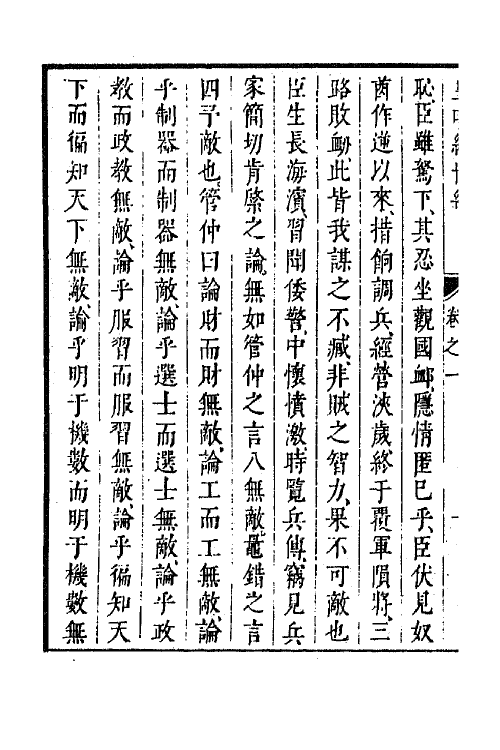 恥、臣雖駑下、其忍坐觀國衂、隱情匿己乎、臣伏見奴
酋作逆以來、措餉調兵、經營浹歲、終于覆軍隕將、三
路敗衂、此皆我謀之不臧、非賊之智力、果不可敵也
臣生長海濱、習聞倭警、中懷憤激、時覽兵傳、竊見兵
家簡切肯綮之論、無如管仲之言八無敵、鼂錯之言
四予敵也、管仲曰論財而財無敵、論工而工無敵、論
乎制器而制器無敵、論乎選士而選士無敵、論乎政
教而政教無敵、論乎服習而服習無敵、論乎徧知天
下而徧知天下無敵、論乎明于機數而明于機數無
卷之一